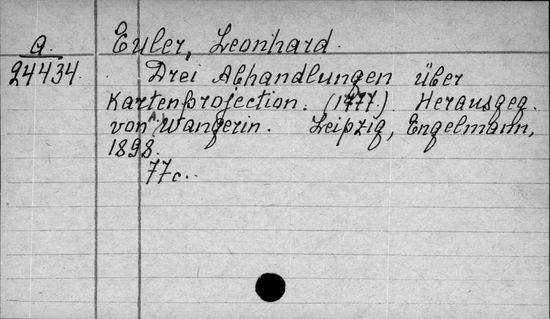 A. Euler, Leonhard.
24434. Drei Abhandlungen über
Kartenprojection. (1777.) Herausgeg.
von A. Wangerin. Leipzig, Engelmann,
1898.
77c..